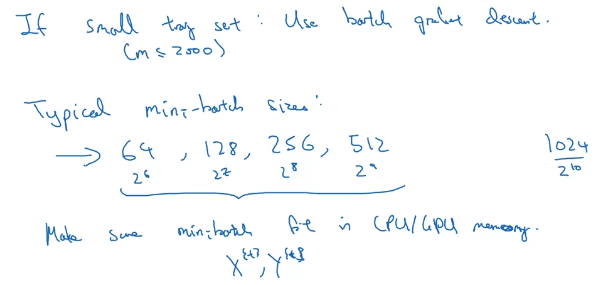 If small trag set : Use batch gradient descent.
(m ≤ 2000)
Typical mini-batch sizes:
→ 64 , 128, 256, 512 1024
2^6 2^7 2^8 2^9 2^10
Make sure mini-batch fit in CPU/GPU memory.
X^{t}, Y^{t}